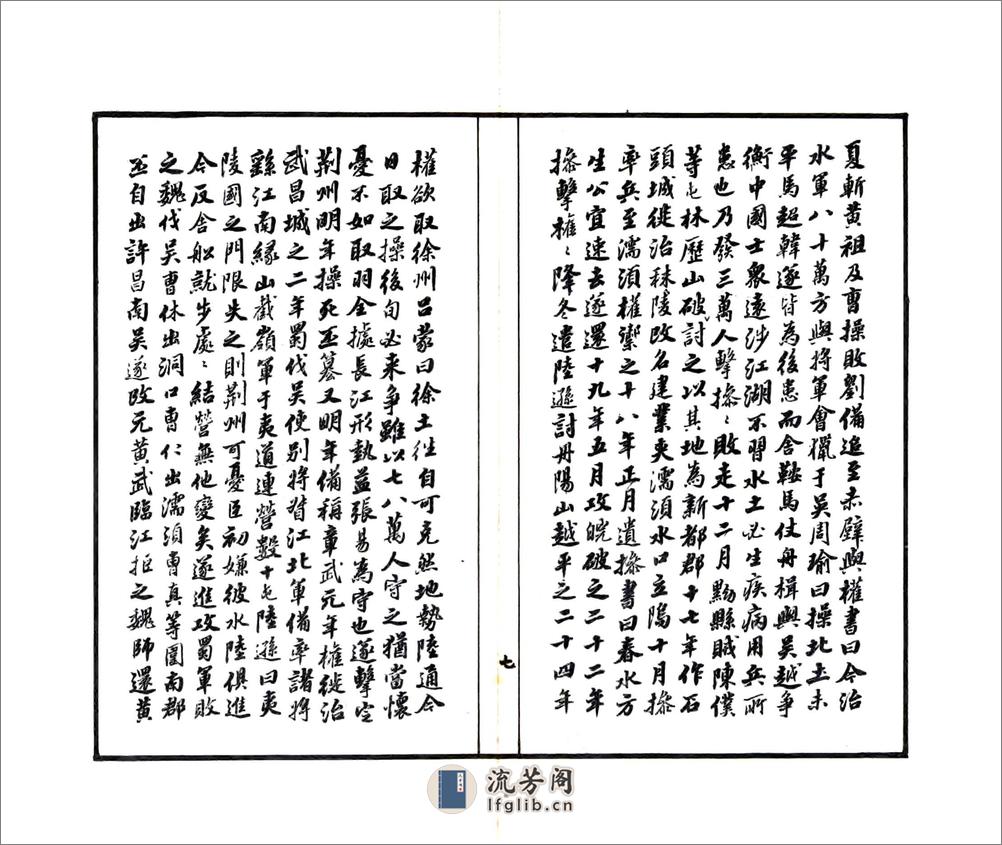 夏斬黃祖及曹操敗劉備追至赤壁與權書曰今治
水軍八十萬方與將軍會獵于吳周瑜曰操北土未
平馬超韓遂皆為後患而舍鞍馬仗舟楫與吳越爭
衡中國士眾遠涉江湖不習水土必生疾病用兵所
患也乃發三萬人擊操〻敗走十二月黝縣賊陳僕
等屯林歷山破討之以其地為新都郡十七年作石
頭城徙治秣陵改名建業夾濡須水口立塢十月操
率兵至濡須權禦之十八年正月遺操書曰春水方
生公宜速去遂還十九年五月攻皖破之二十二年
操擊權〻降冬遣陸遜討丹陽山越平之二十四年
七
權欲取徐州呂蒙曰徐土往自可克然地勢陸通今
日取之操後旬必來爭雖以七八萬人守之猶當懷
憂不如取羽全據長江形執益張易為守也遂擊定
荊州明年操死丕篡又明年備稱章武元年權徙治
武昌城之二年蜀伐吳使別將督江北軍備率諸將
繇江南緣山截嶺軍于夷道連營數十屯陸遜曰夷
陵國之門限失之則荊州可憂臣初嫌彼水陸俱進
今反舍船就步處〻結營無他變矣遂進攻蜀軍敗
之魏伐吳曹休出洞口曹仁出濡須曹真等圍南郡
丕自出許昌南吳遂改元黃武臨江拒之魏師還黃
流芳阁
lfglib.cn